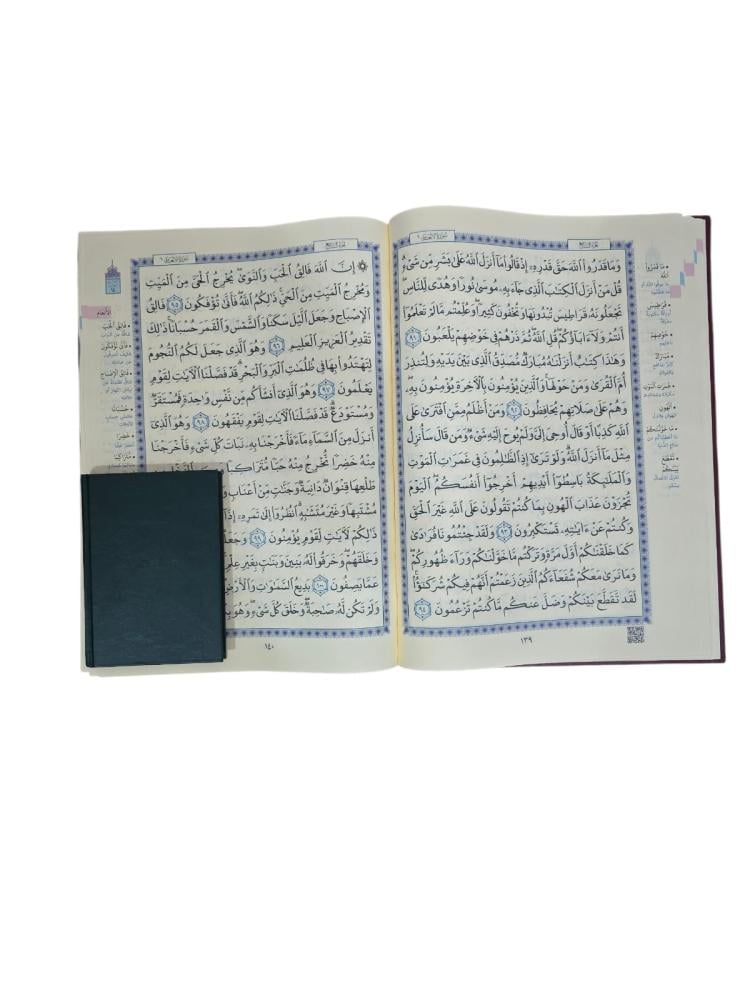 سورة الأنعام ٦
الجزء السابع
وَمَا قَدَرُوا۟ ٱللَّهَ حَقَّ قَدْرِهِۦٓ إِذْ قَالُوا۟ مَآ أَنزَلَ ٱللَّهُ عَلَىٰ بَشَرٍ مِّن شَىْءٍ
قُلْ مَنْ أَنزَلَ ٱلْكِتَـٰبَ ٱلَّذِى جَآءَ بِهِۦ مُوسَىٰ نُورًا وَهُدًى لِّلنَّاسِ
تَجْعَلُونَهُۥ قَرَاطِيسَ تُبْدُونَهَا وَتُخْفُونَ كَثِيرًا وَعُلِّمْتُم مَّا لَمْ تَعْلَمُوٓا۟
أَنتُمْ وَلَآ ءَابَآؤُكُمْ قُلِ ٱللَّهُ ثُمَّ ذَرْهُمْ فِى خَوْضِهِمْ يَلْعَبُونَ ٩١
وَهَـٰذَا كِتَـٰبٌ أَنزَلْنَـٰهُ مُبَارَكٌ مُّصَدِّقُ ٱلَّذِى بَيْنَ يَدَيْهِ وَلِتُنذِرَ
أُمَّ ٱلْقُرَىٰ وَمَنْ حَوْلَهَا وَٱلَّذِينَ يُؤْمِنُونَ بِٱلْـَٔاخِرَةِ يُؤْمِنُونَ بِهِۦ
وَهُمْ عَلَىٰ صَلَاتِهِمْ يُحَافِظُونَ ٩٢ وَمَنْ أَظْلَمُ مِمَّنِ ٱفْتَرَىٰ عَلَى
ٱللَّهِ كَذِبًا أَوْ قَالَ أُوحِىَ إِلَىَّ وَلَمْ يُوحَ إِلَيْهِ شَىْءٌ وَمَن قَالَ سَأُنزِلُ
مِثْلَ مَآ أَنزَلَ ٱللَّهُ وَلَوْ تَرَىٰٓ إِذِ ٱلظَّـٰلِمُونَ فِى غَمَرَٰتِ ٱلْمَوْتِ
وَٱلْمَلَـٰٓئِكَةُ بَاسِطُوٓا۟ أَيْدِيهِمْ أَخْرِجُوٓا۟ أَنفُسَكُمُ ٱلْيَوْمَ
تُجْزَوْنَ عَذَابَ ٱلْهُونِ بِمَا كُنتُمْ تَقُولُونَ عَلَى ٱللَّهِ غَيْرَ ٱلْحَقِّ
وَكُنتُمْ عَنْ ءَايَـٰتِهِۦ تَسْتَكْبِرُونَ ٩٣ وَلَقَدْ جِئْتُمُونَا فُرَٰدَىٰ
كَمَا خَلَقْنَـٰكُمْ أَوَّلَ مَرَّةٍ وَتَرَكْتُم مَّا خَوَّلْنَـٰكُمْ وَرَآءَ ظُهُورِكُمْ
وَمَا نَرَىٰ مَعَكُمْ شُفَعَآءَكُمُ ٱلَّذِينَ زَعَمْتُمْ أَنَّهُمْ فِيكُمْ شُرَكَـٰٓؤُا۟
لَقَد تَّقَطَّعَ بَيْنَكُمْ وَضَلَّ عَنكُم مَّا كُنتُمْ تَزْعُمُونَ ٩٤
١٣٩
الجزء السابع
سورة الأنعام ٦
إِنَّ ٱللَّهَ فَالِقُ ٱلْحَبِّ وَٱلنَّوَىٰ يُخْرِجُ ٱلْحَىَّ مِنَ ٱلْمَيِّتِ
وَمُخْرِجُ ٱلْمَيِّتِ مِنَ ٱلْحَىِّ ذَٰلِكُمُ ٱللَّهُ فَأَنَّىٰ تُؤْفَكُونَ ٩٥ فَالِقُ
ٱلْإِصْبَاحِ وَجَعَلَ ٱلَّيْلَ سَكَنًا وَٱلشَّمْسَ وَٱلْقَمَرَ حُسْبَانًا ذَٰلِكَ
تَقْدِيرُ ٱلْعَزِيزِ ٱلْعَلِيمِ ٩٦ وَهُوَ ٱلَّذِى جَعَلَ لَكُمُ ٱلنُّجُومَ
لِتَهْتَدُوا۟ بِهَا فِى ظُلُمَـٰتِ ٱلْبَرِّ وَٱلْبَحْرِ قَدْ فَصَّلْنَا ٱلْـَٔايَـٰتِ لِقَوْمٍ
يَعْلَمُونَ ٩٧ وَهُوَ ٱلَّذِىٓ أَنشَأَكُم مِّن نَّفْسٍ وَٰحِدَةٍ فَمُسْتَقَرٌّ
وَمُسْتَوْدَعٌ قَدْ فَصَّلْنَا ٱلْـَٔايَـٰتِ لِقَوْمٍ يَفْقَهُونَ ٩٨ وَهُوَ ٱلَّذِىٓ
أَنزَلَ مِنَ ٱلسَّمَآءِ مَآءً فَأَخْرَجْنَا بِهِۦ نَبَاتَ كُلِّ شَىْءٍ فَأَخْرَجْنَا
مِنْهُ خَضِرًا نُّخْرِجُ مِنْهُ حَبًّا مُّتَرَاكِبًا
طَلْعِهَا قِنْوَانٌ دَانِيَةٌ وَجَنَّـٰتٍ مِّنْ أَعْنَابٍ
مُشْتَبِهًا وَغَيْرَ مُتَشَـٰبِهٍ ٱنظُرُوٓا۟ إِلَىٰ ثَمَرِهِۦٓ إِذَآ
ذَٰلِكُمْ لَـَٔايَـٰتٍ لِّقَوْمٍ يُؤْمِنُونَ ٩٩ وَجَعَلُوا۟
وَخَلَقَهُمْ وَخَرَقُوا۟ لَهُۥ بَنِينَ وَبَنَـٰتٍ بِغَيْرِ عِلْمٍ
عَمَّا يَصِفُونَ ١٠٠ بَدِيعُ ٱلسَّمَـٰوَٰتِ وَٱلْأَرْضِ
وَلَمْ تَكُن لَّهُۥ صَـٰحِبَةٌ وَخَلَقَ كُلَّ شَىْءٍ وَهُوَ
١٤٠
الأنعام